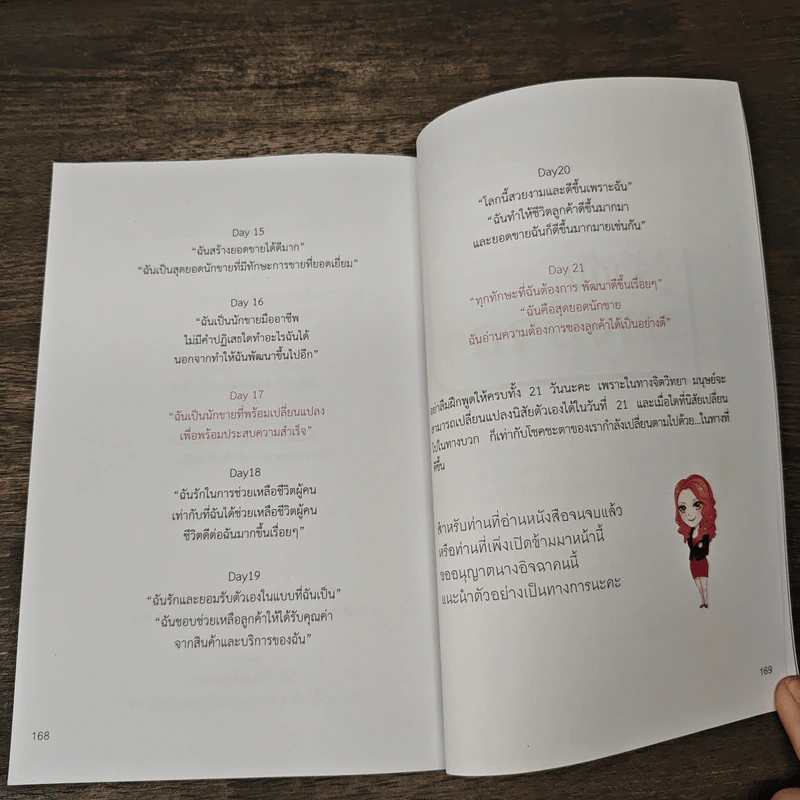 Day 15
“ฉันสร้างยอดขายได้ดีมาก”
“ฉันเป็นสุดยอดนักขายที่มีทักษะการขายที่ยอดเยี่ยม”
Day 16
“ฉันเป็นนักขายมืออาชีพ
ไม่มีคำปฏิเสธใดทำอะไรฉันได้
นอกจากทำให้ฉันพัฒนาขึ้นไปอีก”
Day 17
“ฉันเป็นนักขายที่พร้อมเปลี่ยนแปลง
เพื่อพร้อมประสบความสำเร็จ”
Day18
“ฉันรักในการช่วยเหลือชีวิตผู้คน
เท่ากับที่ฉันได้ช่วยเหลือผู้คน
ชีวิตดีต่อฉันมากขึ้นเรื่อยๆ”
Day19
“ฉันรักและยอมรับตัวเองในแบบที่ฉันเป็น”
“ฉันชอบช่วยเหลือลูกค้าให้ได้รับคุณค่า
จากสินค้าและบริการของฉัน”
168
Day20
“โลกนี้สวยงามและดีขึ้นเพราะฉัน”
“ฉันทำให้ชีวิตลูกค้าดีขึ้นมากมา
และยอดขายฉันก็ดีขึ้นมากมายเช่นกัน”
Day 21
“ทุกทักษะที่ฉันต้องการ พัฒนาดีขึ้นเรื่อยๆ”
“ฉันคือสุดยอดนักขาย
ฉันอ่านความต้องการของลูกค้าได้เป็นอย่างดี”
อย่าลืมฝึกพูดให้ครบทั้ง 21 วันนะคะ เพราะในทางจิตวิทยา มนุษย์จะ
สามารถเปลี่ยนแปลงนิสัยตัวเองได้ในวันที่ 21 และเมื่อใดที่นิสัยเปลี่ยน
ไปในทางบวก ก็เท่ากับโชคชะตาของเรากำลังเปลี่ยนตามไปด้วย...ในทางที่
ดีขึ้น
สำหรับท่านที่อ่านหนังสือจนจบแล้ว
หรือท่านที่เพิ่งเปิดข้ามมาหน้านี้
ขออนุญาตนางอิจฉาคนนี้
แนะนำตัวอย่างเป็นทางการนะคะ
169